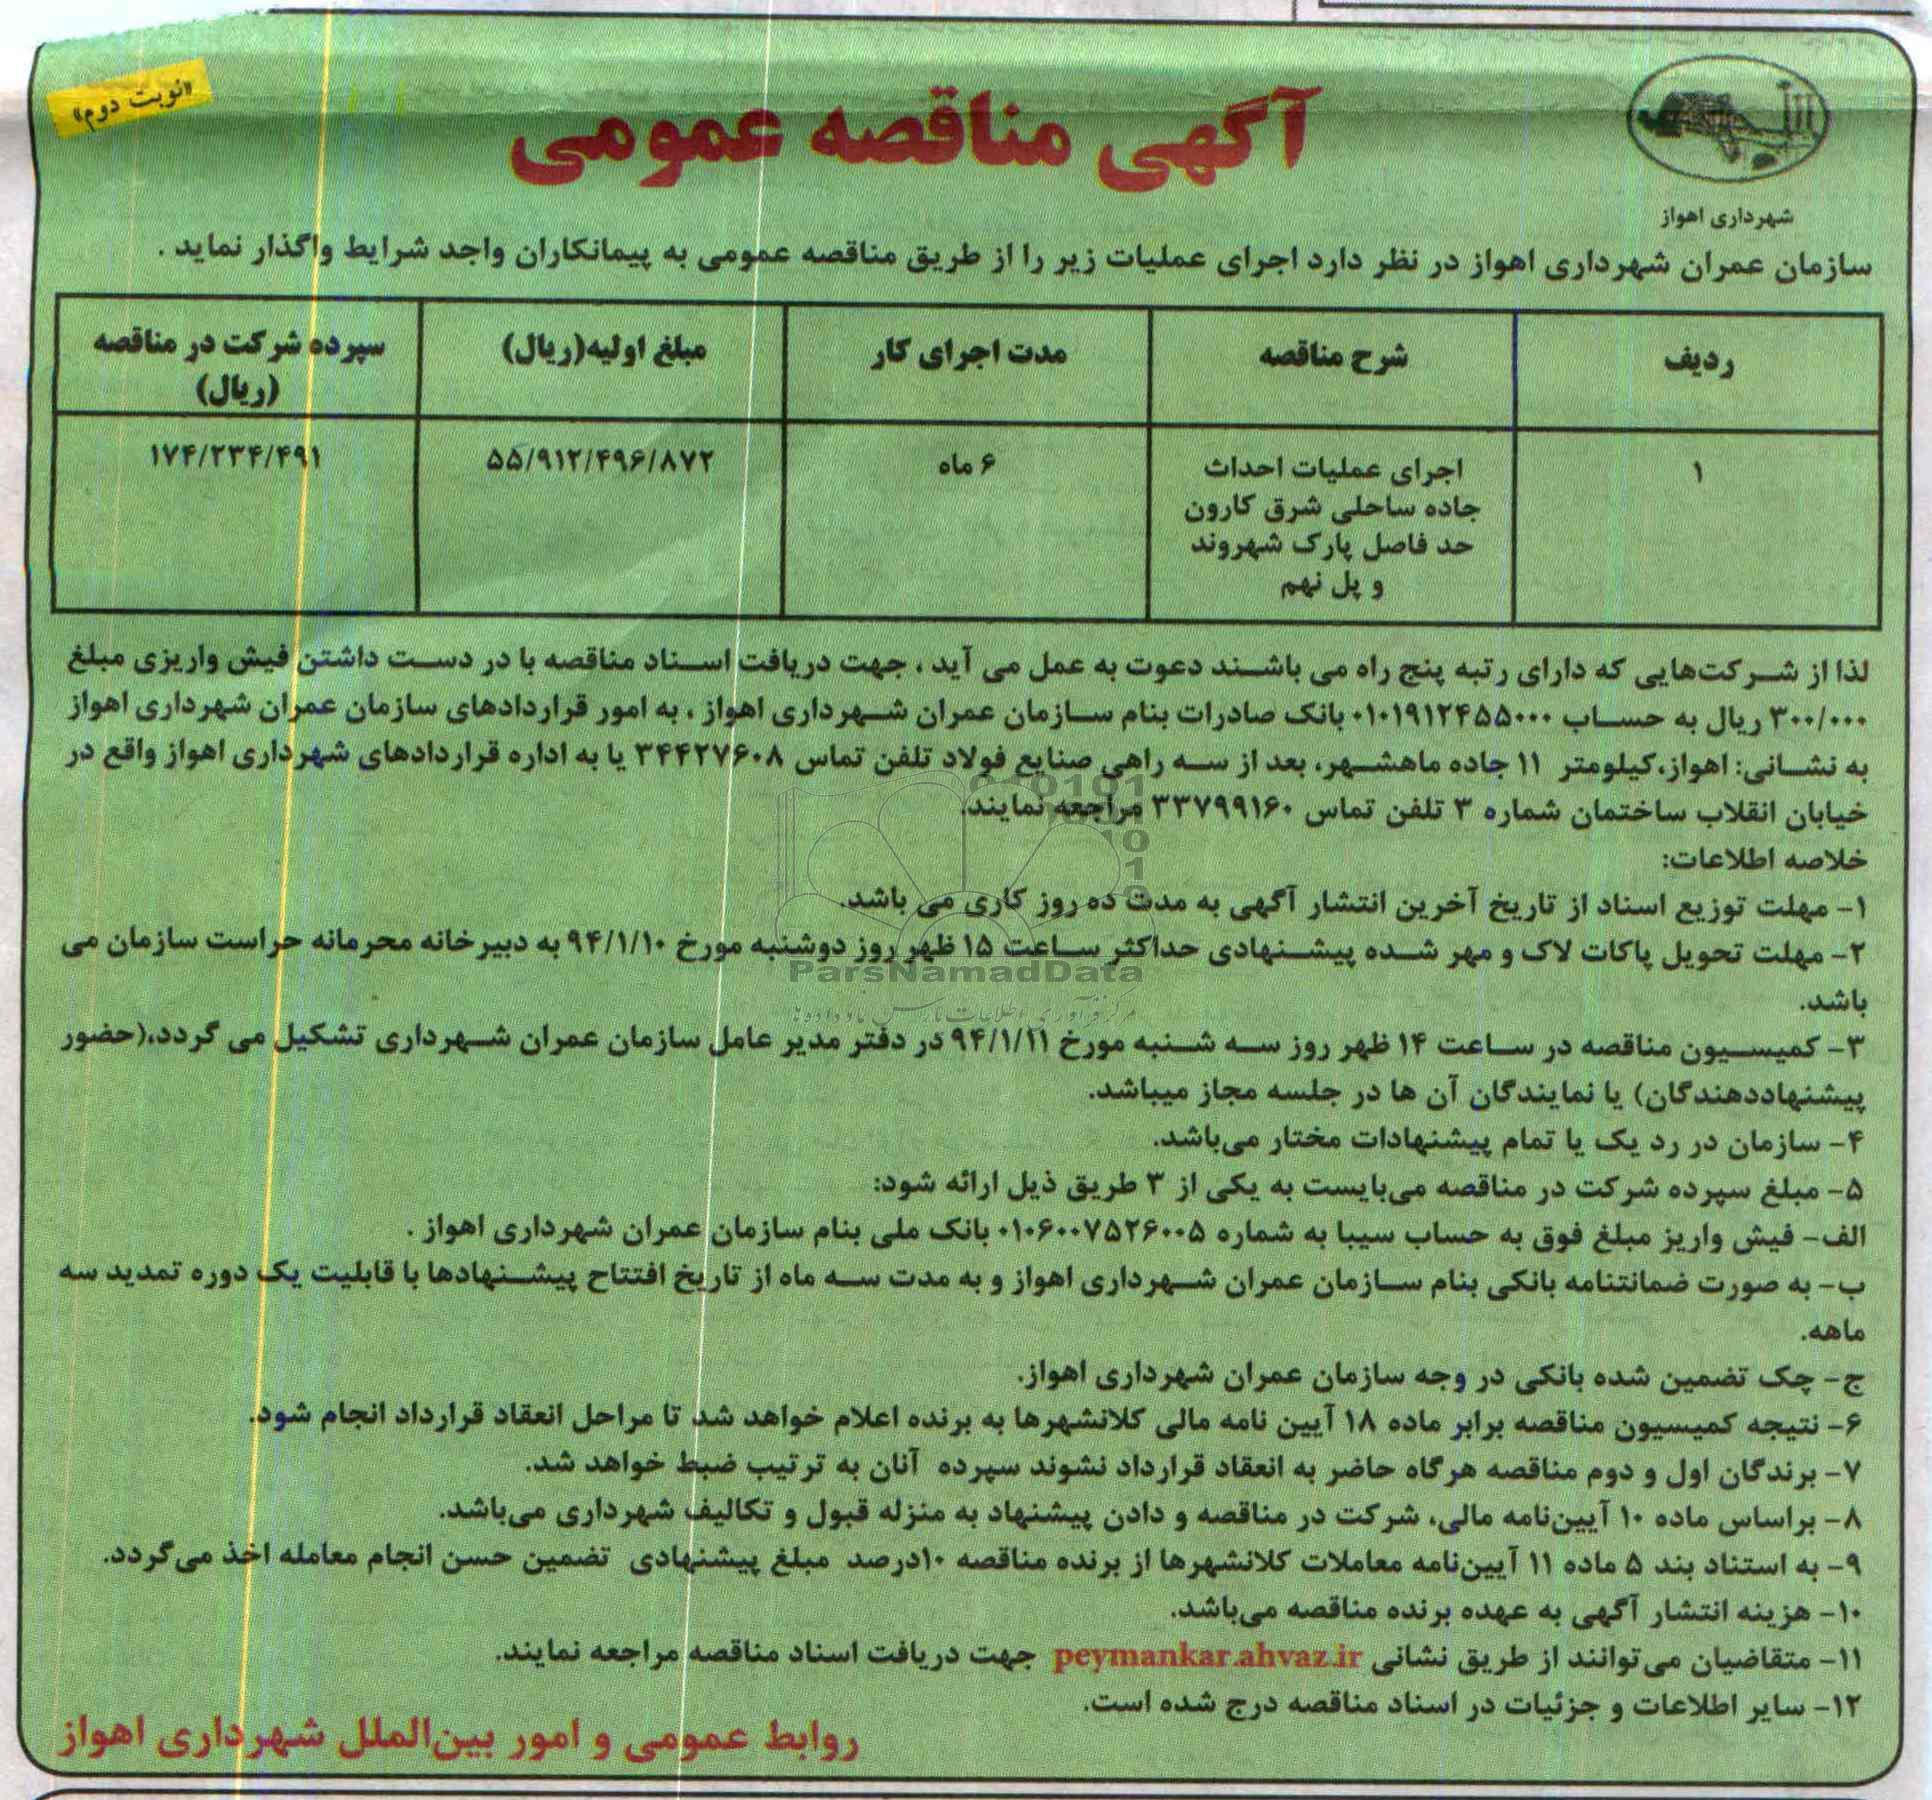 «نوبت دوم»
آگهی مناقصه عمومی
شهرداری اهواز
سازمان عمران شهرداری اهواز در نظر دارد اجرای عملیات زیر را از طریق مناقصه عمومی به پیمانکاران واجد شرایط واگذار نماید .
ردیف	شرح مناقصه	مدت اجرای کار	مبلغ اولیه(ریال)	سپرده شرکت در مناقصه
(ریال)
۱	اجرای عملیات احداث	۶ ماه	۵۵/۹۱۲/۴۹۶/۸۷۲	۱۷۴/۲۳۴/۴۹۱
جاده ساحلی شرق کارون
حد فاصل پارک شهروند
و پل نهم
لذا از شرکت‌هایی که دارای رتبه پنج راه می باشند دعوت به عمل می آید ، جهت دریافت اسناد مناقصه با در دست داشتن فیش واریزی مبلغ
۳۰۰/۰۰۰ ریال به حساب ۰۱۰۱۹۱۲۴۵۵۰۰۰ بانک صادرات بنام سازمان عمران شهرداری اهواز ، به امور قراردادهای سازمان عمران شهرداری اهواز
به نشانی: اهواز،کیلومتر ۱۱ جاده ماهشهر، بعد از سه راهی صنایع فولاد تلفن تماس ۳۴۴۲۷۶۰۸ یا به اداره قراردادهای شهرداری اهواز واقع در
خیابان انقلاب ساختمان شماره ۳ تلفن تماس ۳۳۷۹۹۱۶۰ مراجعه نمایند.
خلاصه اطلاعات:
۱- مهلت توزیع اسناد از تاریخ آخرین انتشار آگهی به مدت ده روز کاری می باشد.
۲- مهلت تحویل پاکات لاک و مهر شده پیشنهادی حداکثر ساعت ۱۵ ظهر روز دوشنبه مورخ ۹۴/۱/۱۰ به دبیرخانه محرمانه حراست سازمان می
باشد.
۳- کمیسیون مناقصه در ساعت ۱۴ ظهر روز سه شنبه مورخ ۹۴/۱/۱۱ در دفتر مدیر عامل سازمان عمران شهرداری تشکیل می گردد،(حضور
پیشنهاددهندگان) یا نمایندگان آن ها در جلسه مجاز میباشد.
۴- سازمان در رد یک یا تمام پیشنهادات مختار می‌باشد.
۵- مبلغ سپرده شرکت در مناقصه می‌بایست به یکی از ۳ طریق ذیل ارائه شود:
الف- فیش واریز مبلغ فوق به حساب سیبا به شماره ۰۱۰۶۰۰۷۵۲۶۰۰۵ بانک ملی بنام سازمان عمران شهرداری اهواز .
ب- به صورت ضمانتنامه بانکی بنام سازمان عمران شهرداری اهواز و به مدت سه ماه از تاریخ افتتاح پیشنهادها با قابلیت یک دوره تمدید سه
ماهه.
ج- چک تضمین شده بانکی در وجه سازمان عمران شهرداری اهواز.
۶- نتیجه کمیسیون مناقصه برابر ماده ۱۸ آیین نامه مالی کلانشهرها به برنده اعلام خواهد شد تا مراحل انعقاد قرارداد انجام شود.
۷- برندگان اول و دوم مناقصه هرگاه حاضر به انعقاد قرارداد نشوند سپرده آنان به ترتیب ضبط خواهد شد.
۸- براساس ماده ۱۰ آیین‌نامه مالی، شرکت در مناقصه و دادن پیشنهاد به منزله قبول و تکالیف شهرداری می‌باشد.
۹- به استناد بند ۵ ماده ۱۱ آیین‌نامه معاملات کلانشهرها از برنده مناقصه ۱۰درصد مبلغ پیشنهادی تضمین حسن انجام معامله اخذ می‌گردد.
۱۰- هزینه انتشار آگهی به عهده برنده مناقصه می‌باشد.
۱۱- متقاضیان می‌توانند از طریق نشانی peymankar.ahvaz.ir جهت دریافت اسناد مناقصه مراجعه نمایند.
۱۲- سایر اطلاعات و جزئیات در اسناد مناقصه درج شده است.
روابط عمومی و امور بین‌الملل شهرداری اهواز
ParsNamadData